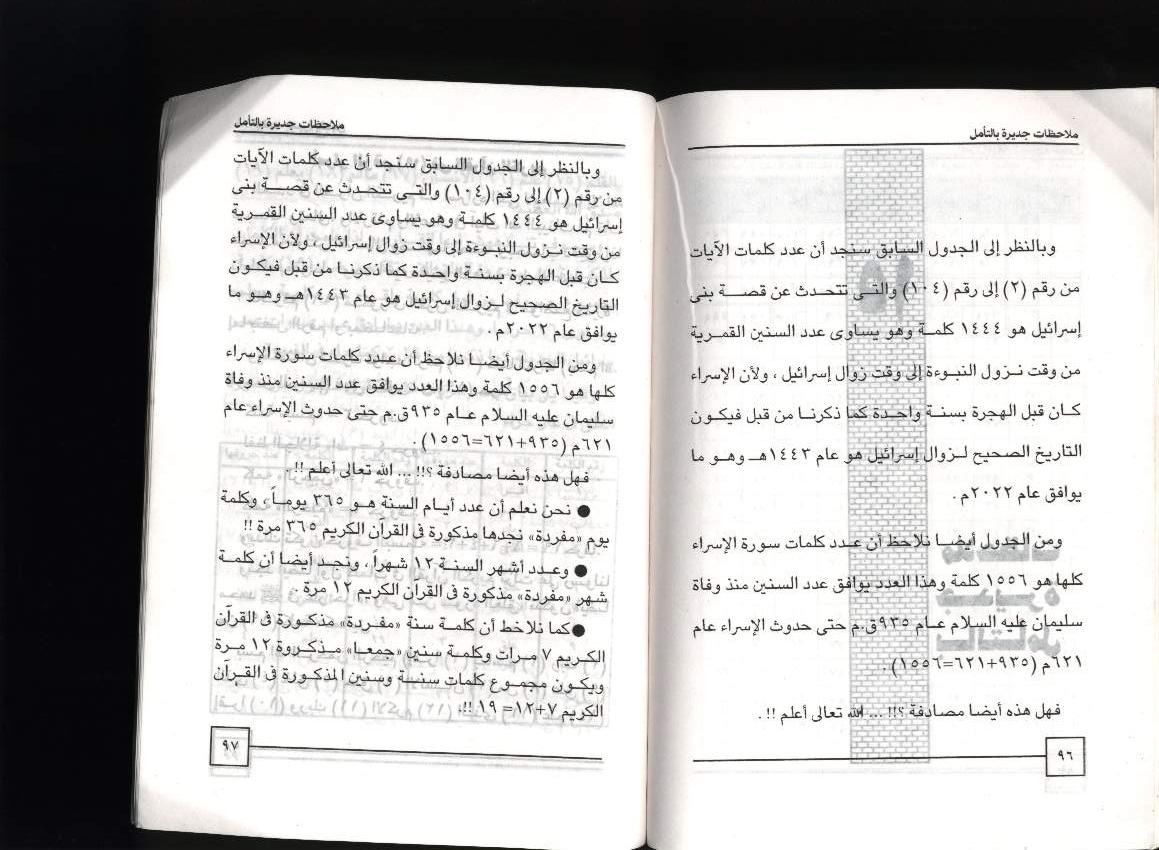 ملاحظات جديرة بالتأمل
وبالنظر إلى الجدول السابق سنجد أن عدد كلمات الآيات
من رقم (٢) إلى رقم (١٠٤) والتى تتحدث عن قصة بنى
إسرائيل هو ١٤٤٤ كلمة وهو يساوى عدد السنين القمرية
من وقت نزول النبوءة إلى وقت زوال إسرائيل ، ولأن الإسراء
كان قبل الهجرة بسنة واحدة كما ذكرنا من قبل فيكون
التاريخ الصحيح لزوال إسرائيل هو عام ١٤٤٣هـ وهو ما
يوافق عام ٢٠٢٢م .
ومن الجدول أيضا نلاحظ أن عدد كلمات سورة الإسراء
كلها هو ١٥٥٦ كلمة وهذا العدد يوافق عدد السنين منذ وفاة
سليمان عليه السلام عام ٩٣٥ق.م حتى حدوث الإسراء عام
٦٢١م (٩٣٥+٦٢١=١٥٥٦) .
فهل هذه أيضا مصادفة ؟!! ... الله تعالى أعلم !! .
٩٦
ملاحظات جديرة بالتأمل
وبالنظر إلى الجدول السابق سنجد أن عدد كلمات الآيات
من رقم (٢) إلى رقم (١٠٤) والتى تتحدث عن قصة بنى
إسرائيل هو ١٤٤٤ كلمة وهو يساوى عدد السنين القمرية
من وقت نزول النبوءة إلى وقت زوال إسرائيل ، ولأن الإسراء
كان قبل الهجرة بسنة واحدة كما ذكرنا من قبل فيكون
التاريخ الصحيح لزوال إسرائيل هو عام ١٤٤٣هـ وهو ما
يوافق عام ٢٠٢٢م .
ومن الجدول أيضا نلاحظ أن عدد كلمات سورة الإسراء
كلها هو ١٥٥٦ كلمة وهذا العدد يوافق عدد السنين منذ وفاة
سليمان عليه السلام عام ٩٣٥ق.م حتى حدوث الإسراء عام
٦٢١م (٩٣٥+٦٢١=١٥٥٦) .
فهل هذه أيضا مصادفة ؟!! ... الله تعالى أعلم !! .
● نحن نعلم أن عدد أيام السنة هو ٣٦٥ يوماً ، وكلمة
يوم «مفردة» نجدها مذكورة فى القرآن الكريم ٣٦٥ مرة !!
● وعدد أشهر السنة ١٢ شهراً ، ونجد أيضا أن كلمة
شهر «مفردة» مذكورة فى القرآن الكريم ١٢ مرة .
● كما نلاخط أن كلمة سنة «مفردة» مذكورة فى القرآن
الكريم ٧ مرات وكلمة سنين «جمعا» مذكروة ١٢ مرة
ويكون مجموع كلمات سنة وسنين المذكورة فى القرآن
الكريم ٧+١٢= ١٩ !!.
٩٧